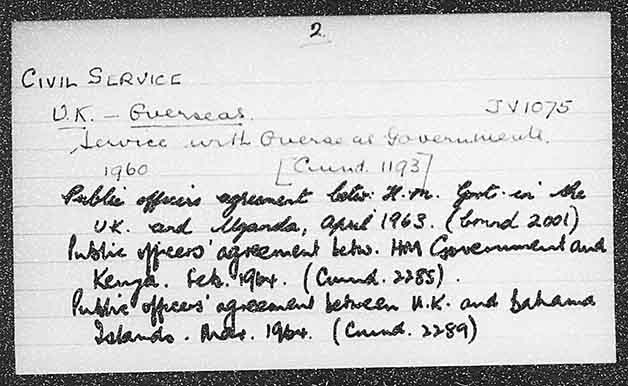 2
CIVIL SERVICE
U.K. - Overseas. JV1075
Service with Overseas Governments.
1960 [Cmnd. 1193]
Public officers agreement betw. H.M. Govt. in the
U.K. and Uganda, April 1963. (Cmnd 2001)
Public officers' agreement betw. HM Government and
Kenya. Feb. 1964. (Cmnd. 2285).
Public officers' agreement between U.K. and Bahama
Islands. Mar. 1964. (Cmnd. 2289)